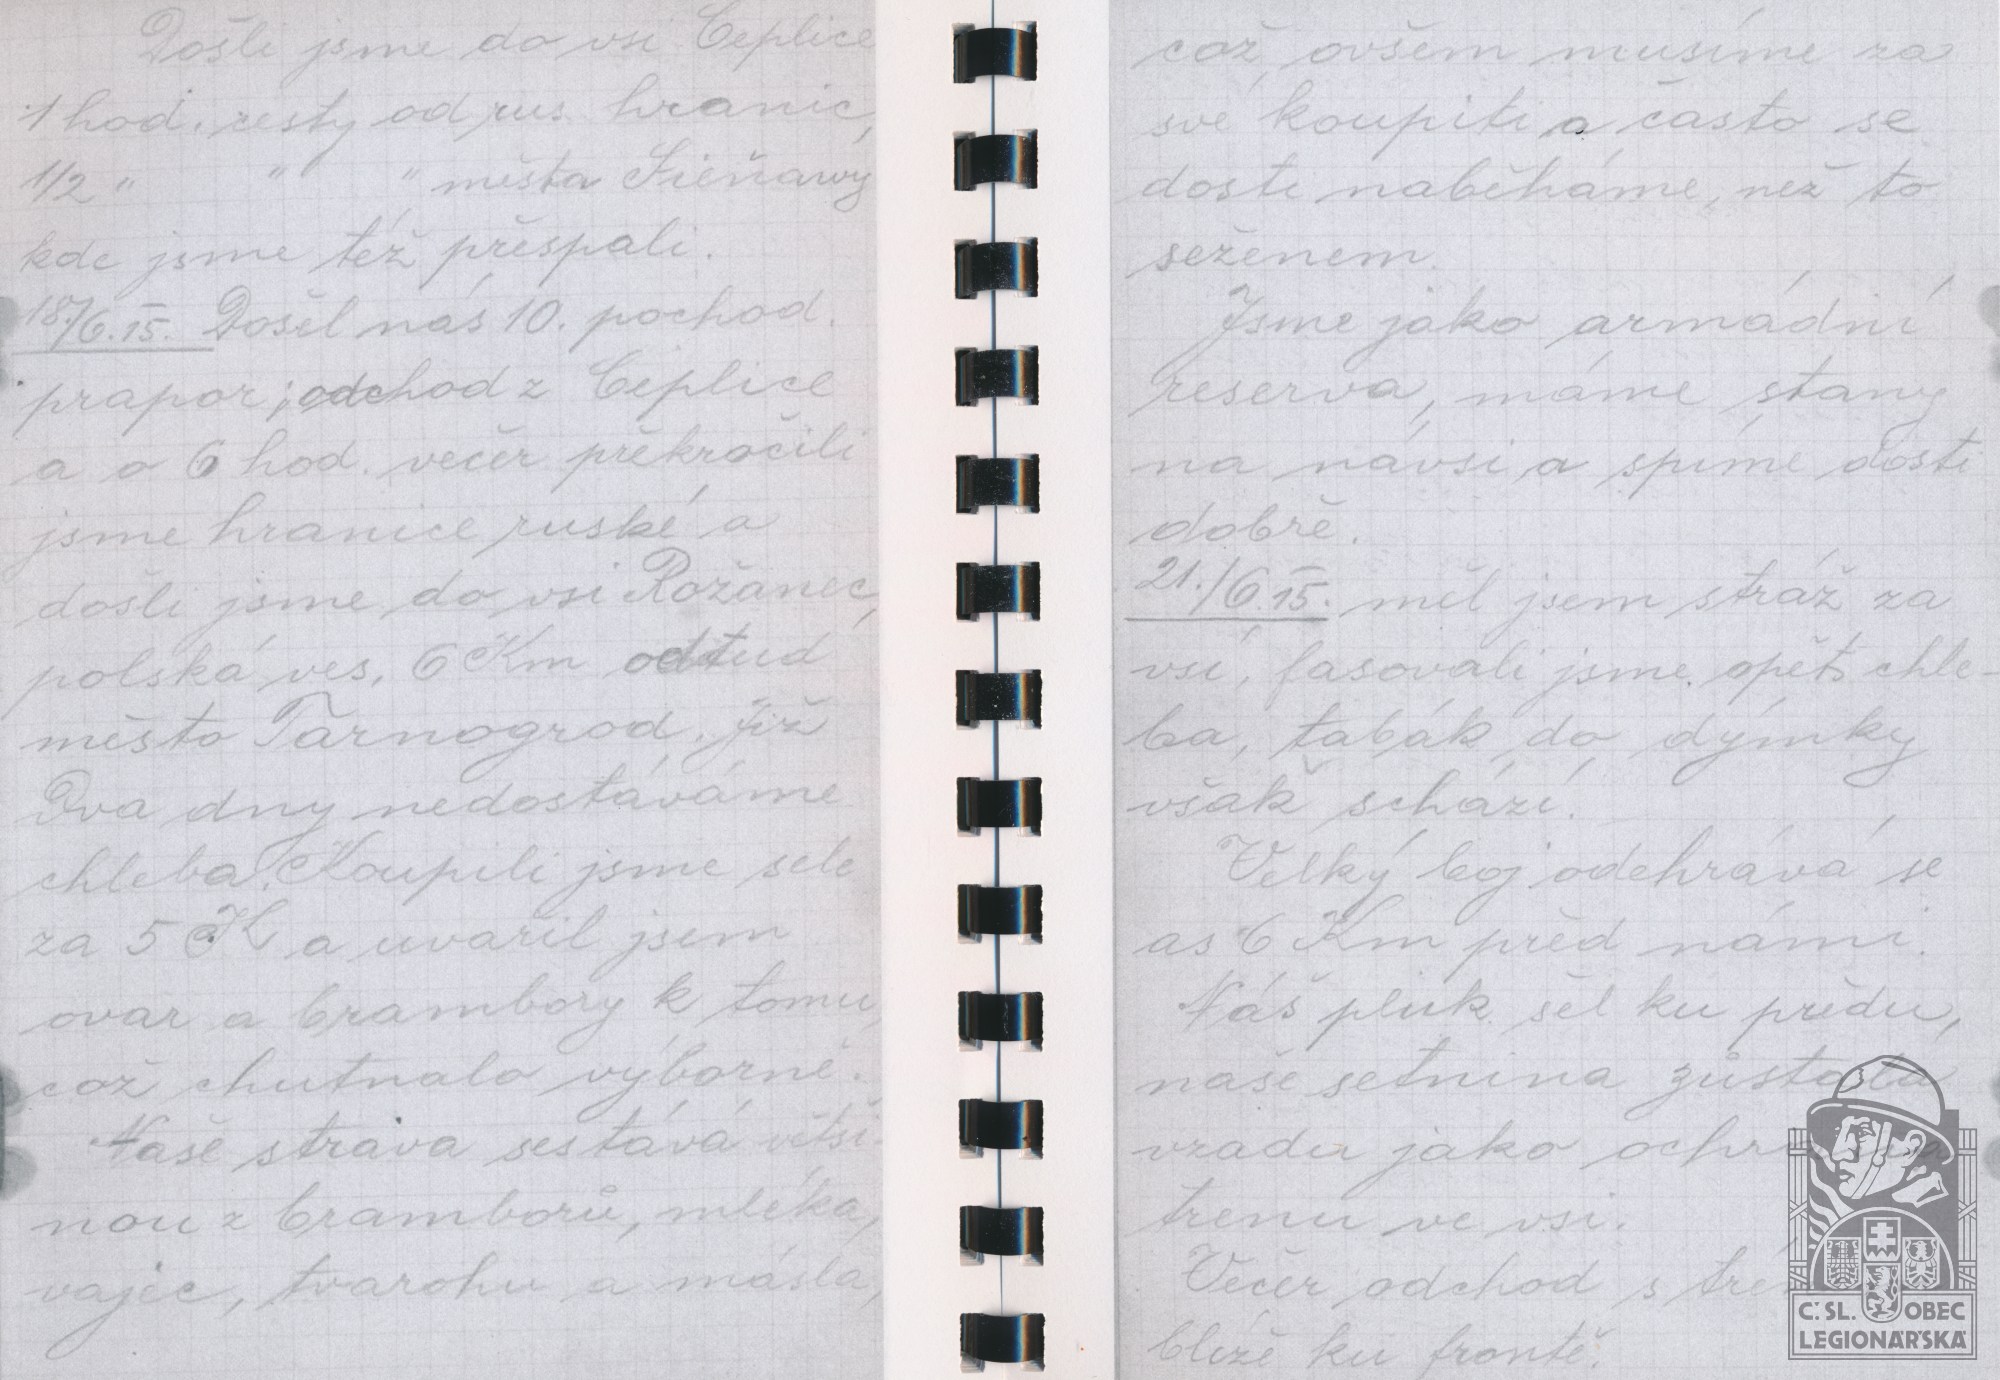 Došli jsme do vsi Ceplice
1 hod. cesty od rus. hranic,
1/2 " " " města Sieňawy
kde jsme též přespali.
18./6. 15. Došel nás 10. pochod.
prapor; odchod z Ceplice
a o 6 hod. večer překročili
jsme hranice ruské a
došli jsme do vsi Rožanec,
polská ves, 6 Km odtud
město Tarnogrod. Již
Dva dny nedostáváme
chleba. Koupili jsme sele
za 5 K a uvařil jsem
ovar a brambory k tomu,
což chutnalo výborně.
Naše strava sestává větši-
nou z bramborů, mléka,
vajec, tvarohu a másla,
což ovšem musíme za
své koupiti a často se
dosti naběháme, než to
seženem.
Jsme jako armádní
reserva, máme stany
na návsi a spíme dosti
dobře.
21./6. 15. měl jsem stráž za
vsí, fasovali jsme opět chle-
ba, tabák do dýmky
však schází.
Velký boj odehrává se
as 6 Km před námi.
Náš pluk šel ku předu,
naše setnina zůstala
vzadu jako ochrana
trenu ve vsi.
Večer odchod s
blíže ku frontě.
Č.SL. OBEC
LEGIONÁŘSKÁ